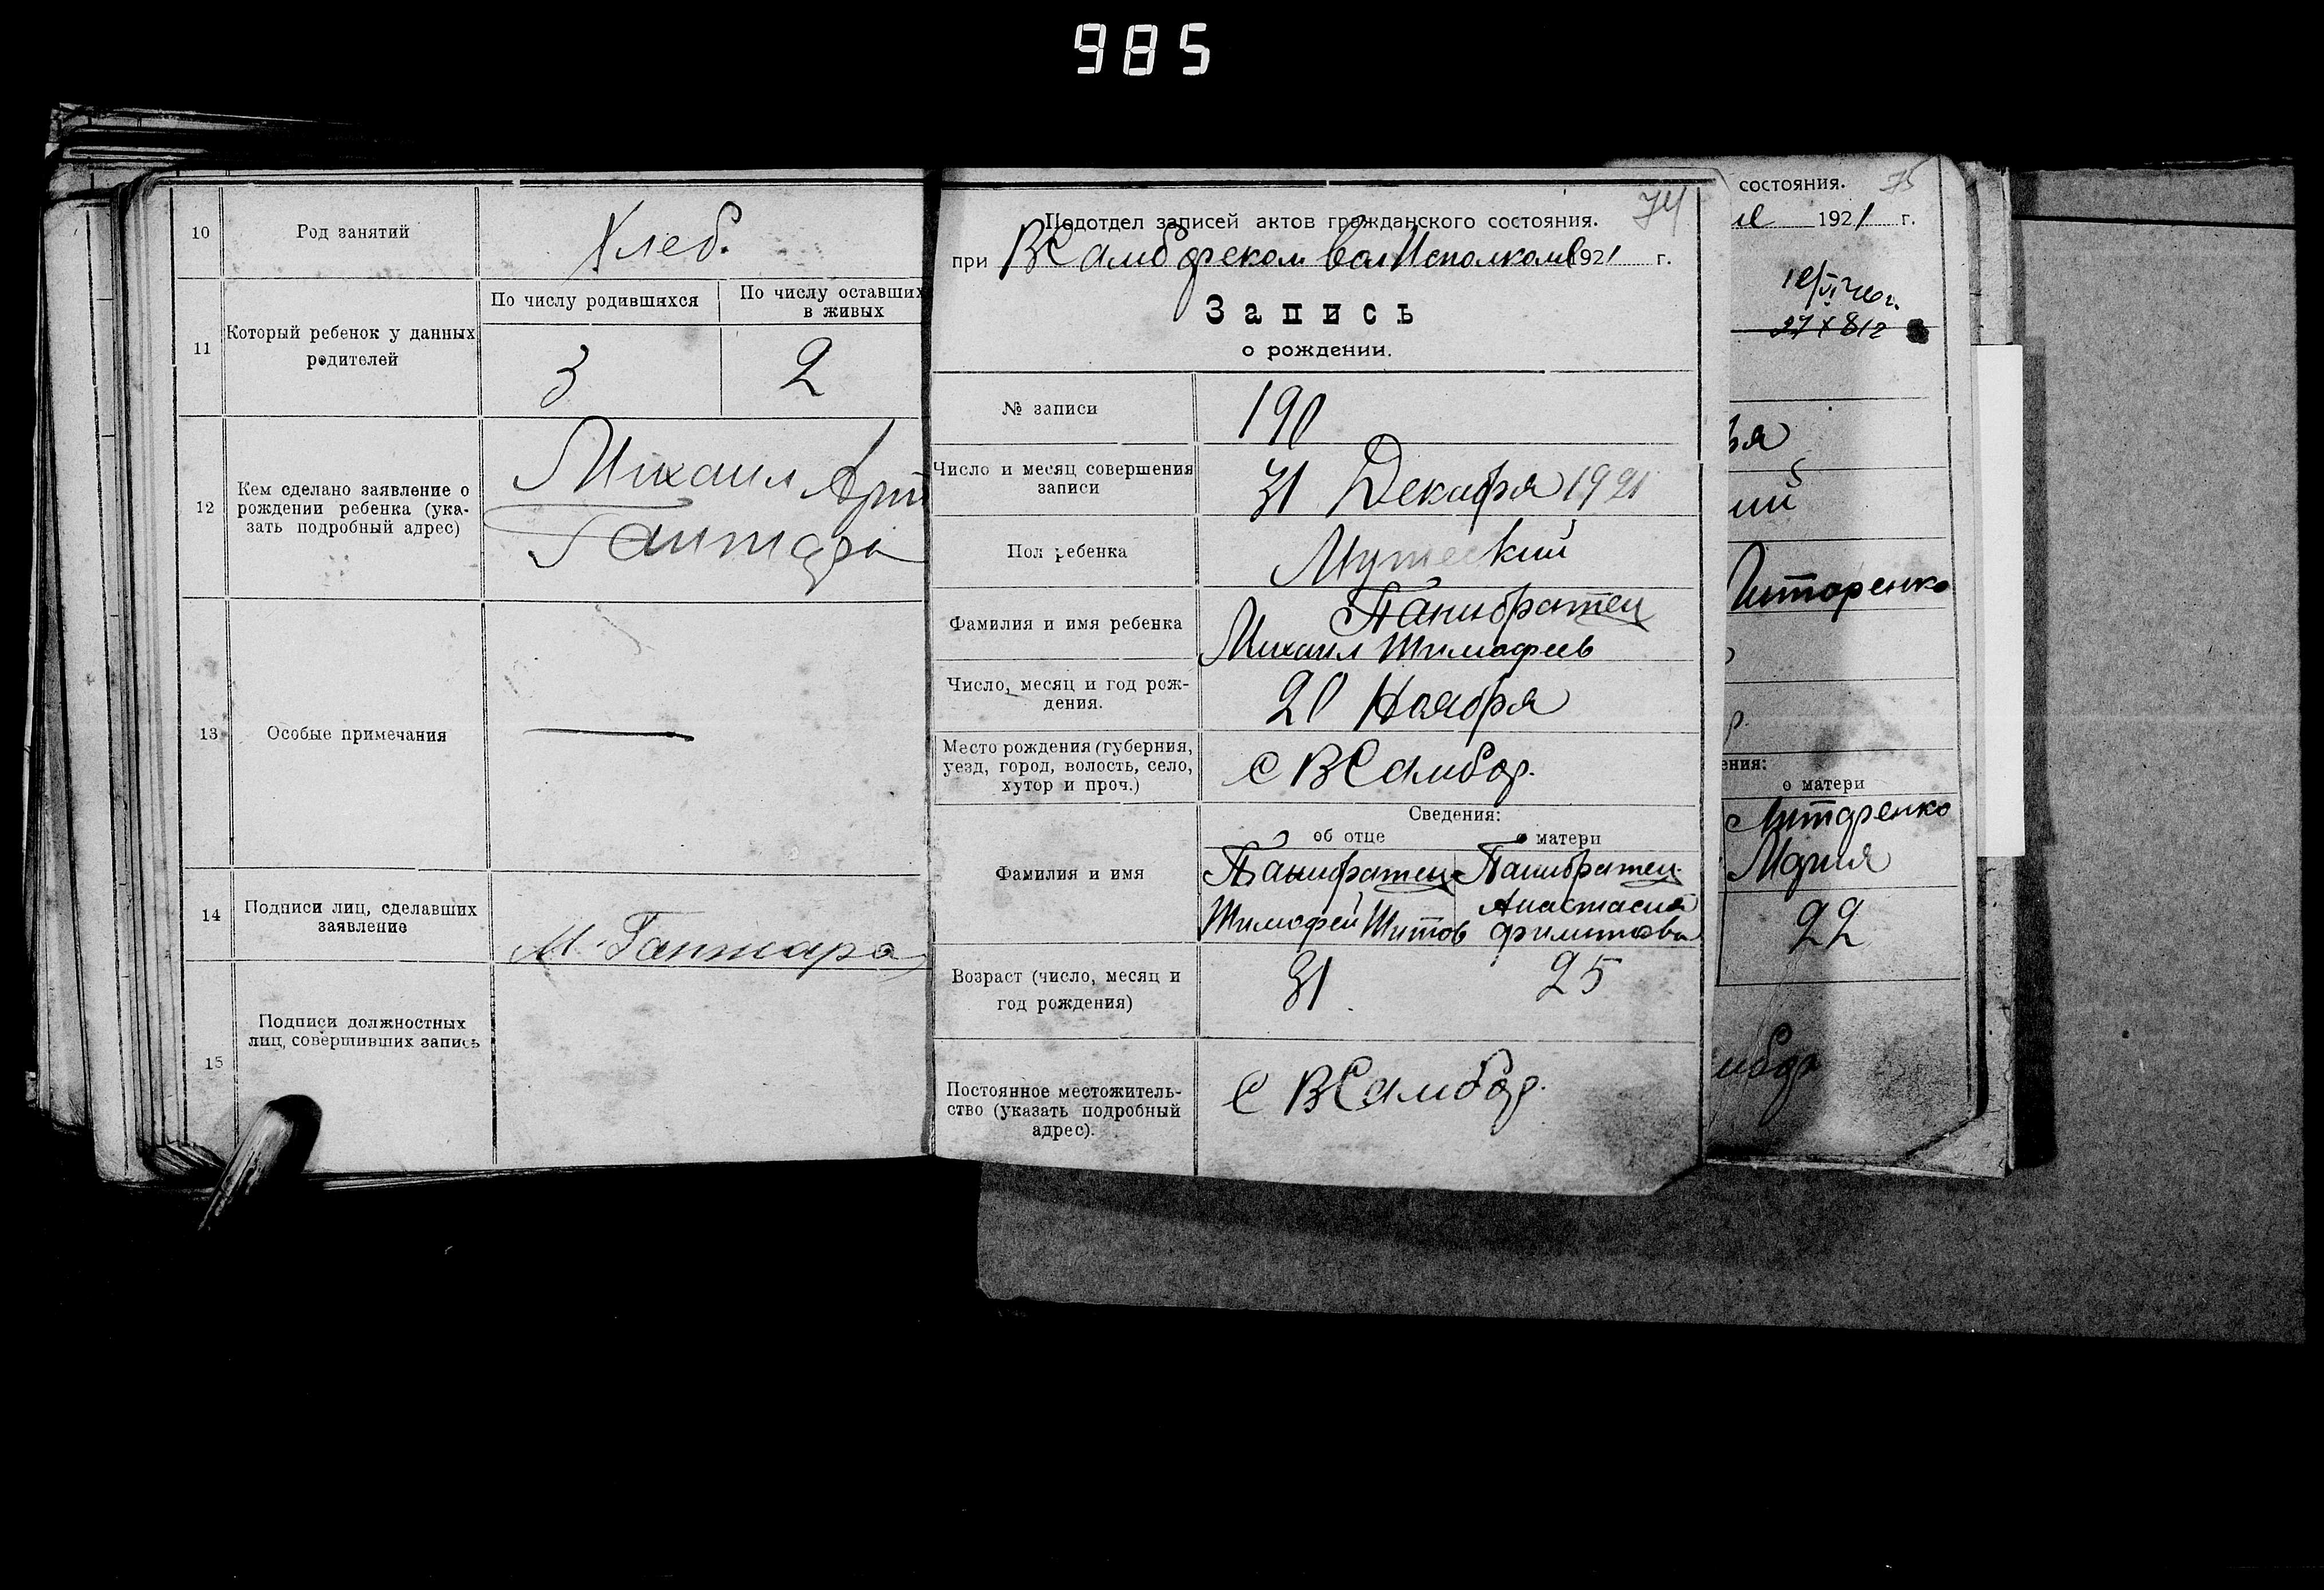 985
10
Род занятий
Хлеб.
11
Который ребенок у данных
родителей
По числу родившихся
По числу оставших
в живых
3
2
12
Кем сделано заявление о
рождении ребенка (ука-
зать подробный адрес)
Михаил
Гаптарь
13
Особые примечания
14
Подписи лиц, сделавших
заявление
М. Гаптара
15
Подписи должностных
лиц, совершивших запись
74
Подотдел записей актов гражданского состояния.
при ВСамборском волИсполкоме 1921 г.
Запись
о рождении.
№ записи
190
Число и месяц совершения
записи
31 Декабря 1921
Пол ребенка
Мужеский
Фамилия и имя ребенка
Панибратец
Михаил Тимофеев
Число, месяц и год рож-
дения.
20 Ноября
Место рождения (губерния,
уезд, город, волость, село,
хутор и проч.)
с ВСамбор.
Сведения:
об отце
о матери
Фамилия и имя
Панибратец
Тимофей Титов
Панибратец
Анастасия
Возраст (число, месяц и
год рождения)
31
25
Постоянное местожитель-
ство (указать подробный
адрес).
с ВСамбор.
состояния. 75
1921 г.
ья
ий
Титаренко
ения:
о матери
Титаренко
Мария
22